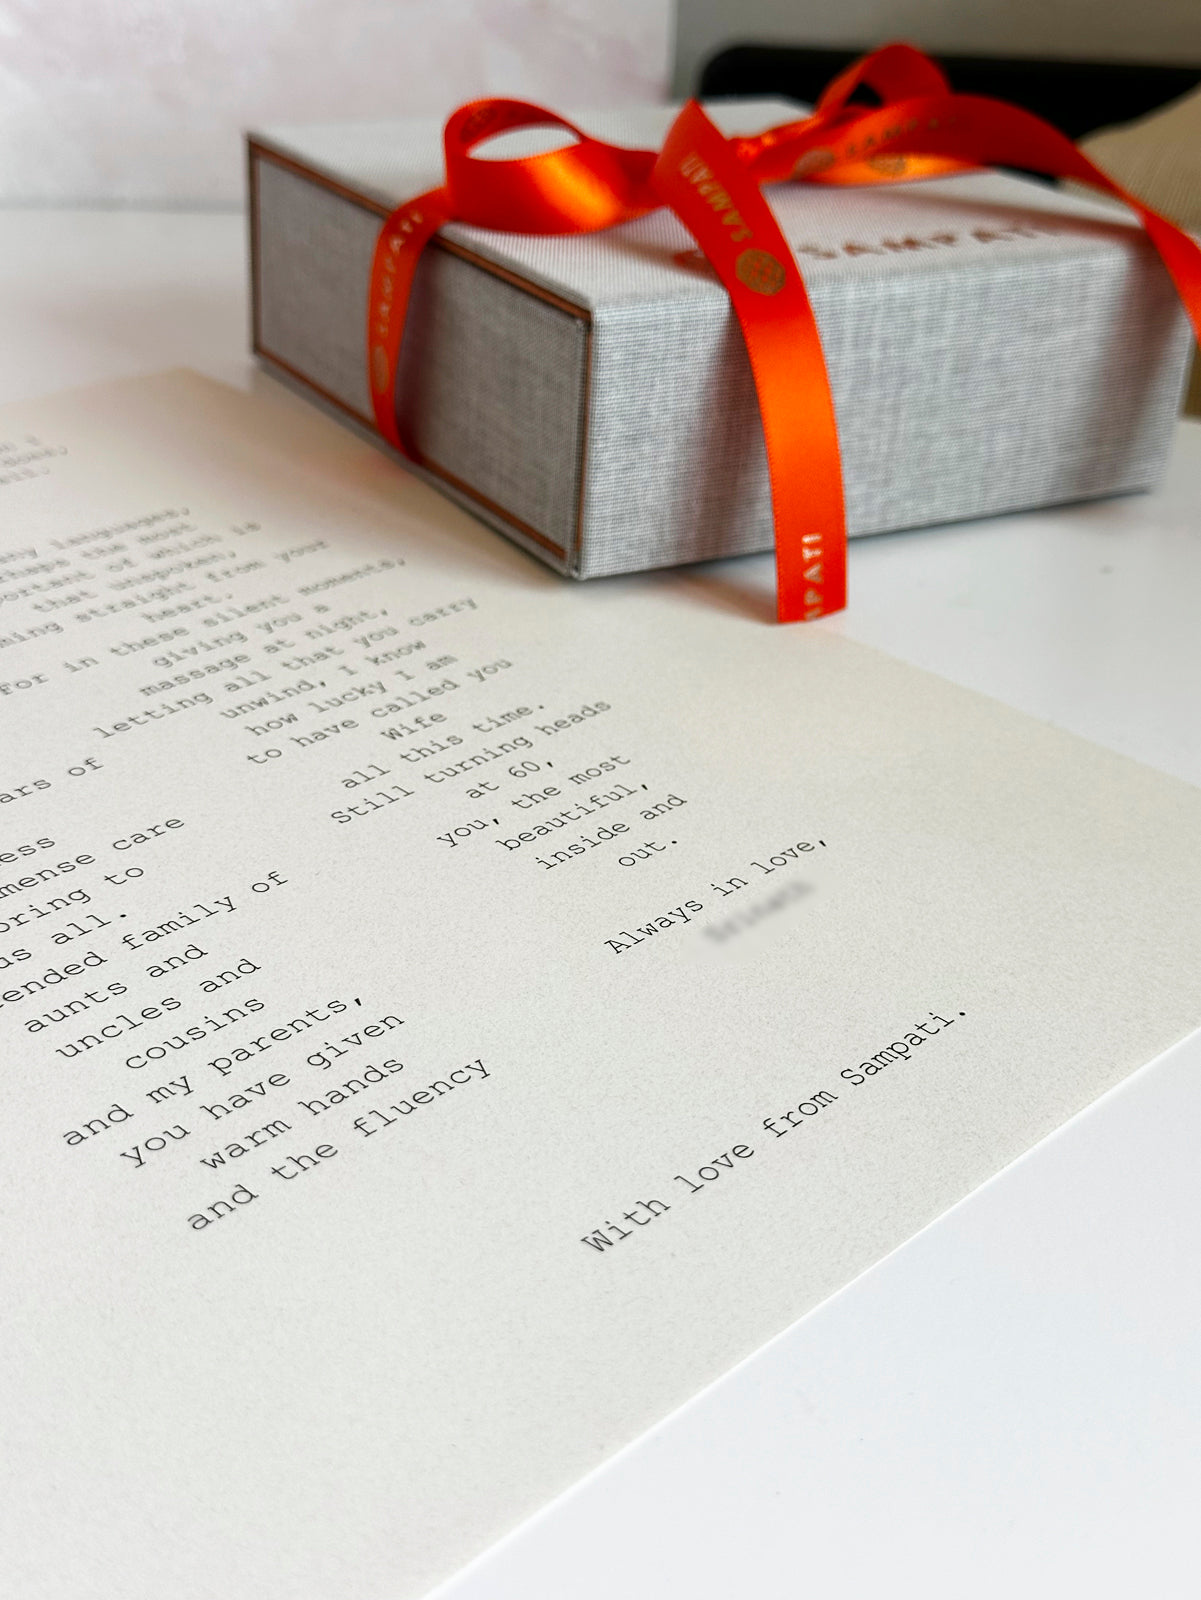 SAMPATI
SAMPATI
SAMPATI
SAMPATI
MPATI
languages,
the most
portant of which is
that unspoken,
straight from your
heart.
For in these silent moments,
giving you a
massage at night,
letting all that you carry
unwind, I know
how lucky I am
to have called you
Wife
all this time.
Still turning heads
at 60,
you, the most
beautiful,
inside and
out.
Always in love,
ars of
ess
mense care
oring to
us all.
ended family of
aunts and
uncles and
cousins
and my parents,
you have given
warm hands
and the fluency
With love from Sampati.